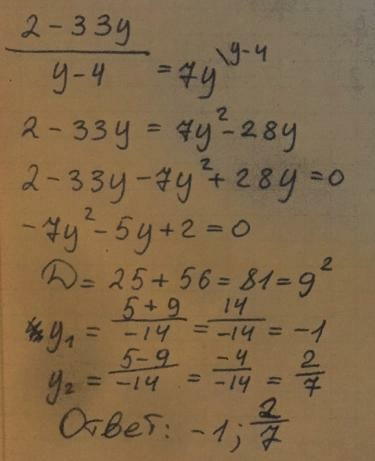 2 - 33y
y - 4
= 7y \y-4
2 - 33y = 7y² - 28y
2 - 33y - 7y² + 28y = 0
-7y² - 5y + 2 = 0
D = 25 + 56 = 81 = 9²
y₁ = (5 + 9)/(-14) = 14/(-14) = -1
y₂ = (5 - 9)/(-14) = (-4)/(-14) = 2/7
Ответ: -1; 2/7